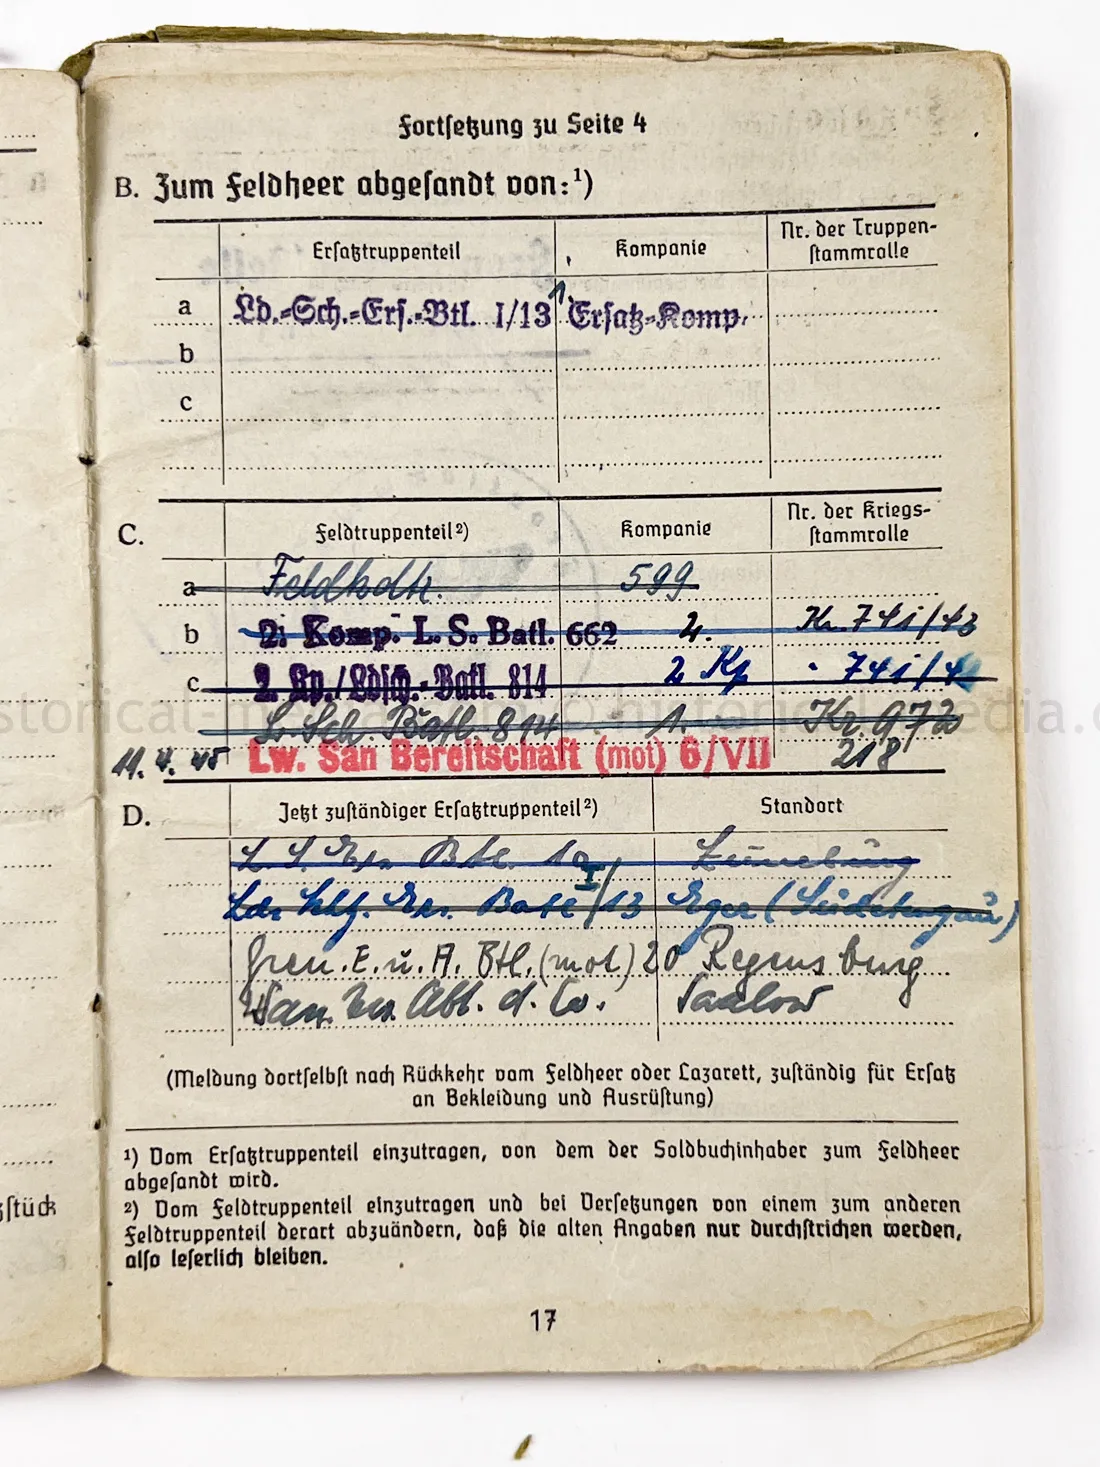 Fortsetzung zu Seite 4
B. Zum Feldheer abgesandt von:¹)
Ersatztruppenteil Kompanie Nr. der Truppen-
stammrolle
a Ld.-Sch.-Ers.-Btl. I/13 1 Ersatz-Komp.
b
c
C. Feldtruppenteil²) Kompanie Nr. der Kriegs-
stammrolle
a Feldkdtr. 599
b 2. Komp. L. S. Batl. 662 2. Kr. 741/43
c 2. Kp./Ldsch.-Batl. 814 2 Kp
L. Sch. Batl. 814 1. Kr. 972
11. 4. 45 Lw. San Bereitschaft (mot) 6/VII 218
D. Jetzt zuständiger Ersatztruppenteil²) Standort
L. S. Ers. Btl. Lüneburg
Lds. Schtz. Ers. Batl I/13 Eger (Sudetengau)
Gren. E. u. A. Btl. (mot) 20 Regensburg
San. Ers. Abt. d. Lw. Saalow
(Meldung dortselbst nach Rückkehr vom Feldheer oder Lazarett, zuständig für Ersatz
an Bekleidung und Ausrüstung)
¹) Vom Ersatztruppenteil einzutragen, von dem der Soldbuchinhaber zum Feldheer
abgesandt wird.
²) Vom Feldtruppenteil einzutragen und bei Versetzungen von einem zum anderen
Feldtruppenteil derart abzuändern, daß die alten Angaben nur durchstrichen werden,
also leserlich bleiben.
17
stück